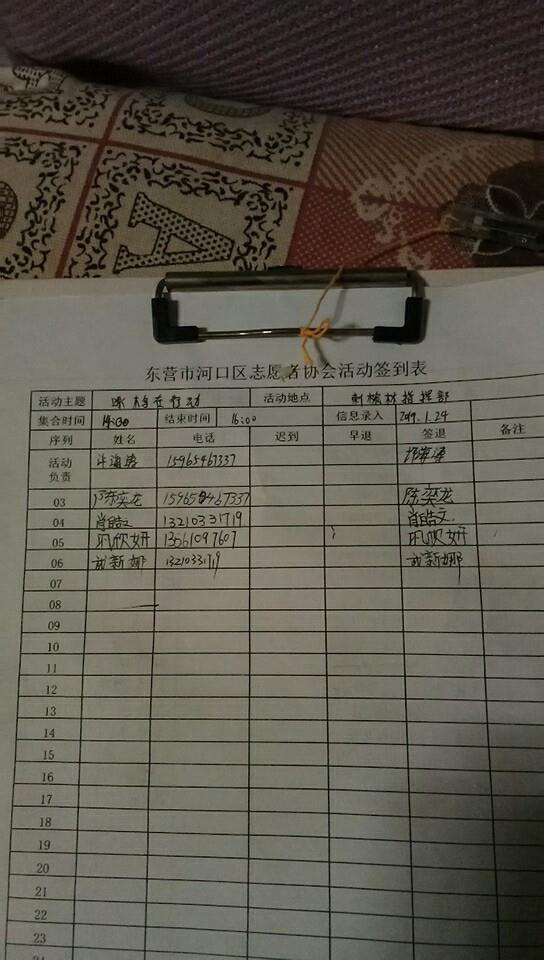 A
东营市河口区志愿者协会活动签到表
活动主题 在行动 活动地点 刺槐林指挥部
集合时间 14:00 结束时间 16:00 信息录入 2019.1.24
序列 姓名 电话 迟到 早退 签退 备注
活动负责 15965467337
03 陈奕龙 15965467337 陈奕龙
04 肖皓文 13210331719 肖皓文
05 巩欣妍 13561097607 巩欣妍
06 新娜 13210331719 新娜
07
08
09
10
11
12
13
14
15
16
17
18
19
20
21
22
23
24